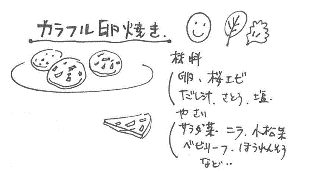 カラフル卵焼き.
材料
卵、桜エビ
だし汁、さとう、塩
やさい
サラダ菜、ニラ、小松菜
ベビーリーフ、ほうれんそう
など‥